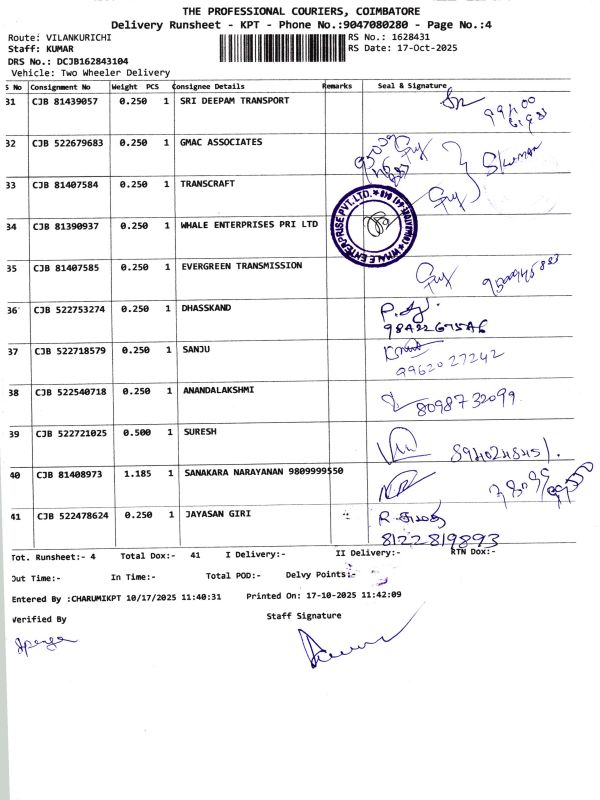 THE PROFESSIONAL COURIERS, COIMBATORE
Delivery Runsheet - KPT - Phone No.:9047080280 - Page No.:4
Route: VILANKURICHI RS No.: 1628431
Staff: KUMAR RS Date: 17-Oct-2025
DRS No.: DCJB162843104
Vehicle: Two Wheeler Delivery
S No Consignment No Weight PCS Consignee Details Remarks Seal & Signature
31 CJB 81439057 0.250 1 SRI DEEPAM TRANSPORT
32 CJB 522679683 0.250 1 GMAC ASSOCIATES
33 CJB 81407584 0.250 1 TRANSCRAFT
34 CJB 81390937 0.250 1 WHALE ENTERPRISES PRI LTD
WHALE ENTERPRISE PVT. LTD.
35 CJB 81407585 0.250 1 EVERGREEN TRANSMISSION
36 CJB 522753274 0.250 1 DHASSKAND
37 CJB 522718579 0.250 1 SANJU 9962027242
38 CJB 522540718 0.250 1 ANANDALAKSHMI 8098732099
39 CJB 522721025 0.500 1 SURESH
40 CJB 81408973 1.185 1 SANAKARA NARAYANAN 9809999550
41 CJB 522478624 0.250 1 JAYASAN GIRI
8122819893
Tot. Runsheet:- 4 Total Dox:- 41 I Delivery:- II Delivery:- RTN Dox:-
Out Time:- In Time:- Total POD:- Delvy Points:-
Entered By :CHARUMIKPT 10/17/2025 11:40:31 Printed On: 17-10-2025 11:42:09
Verified By Staff Signature